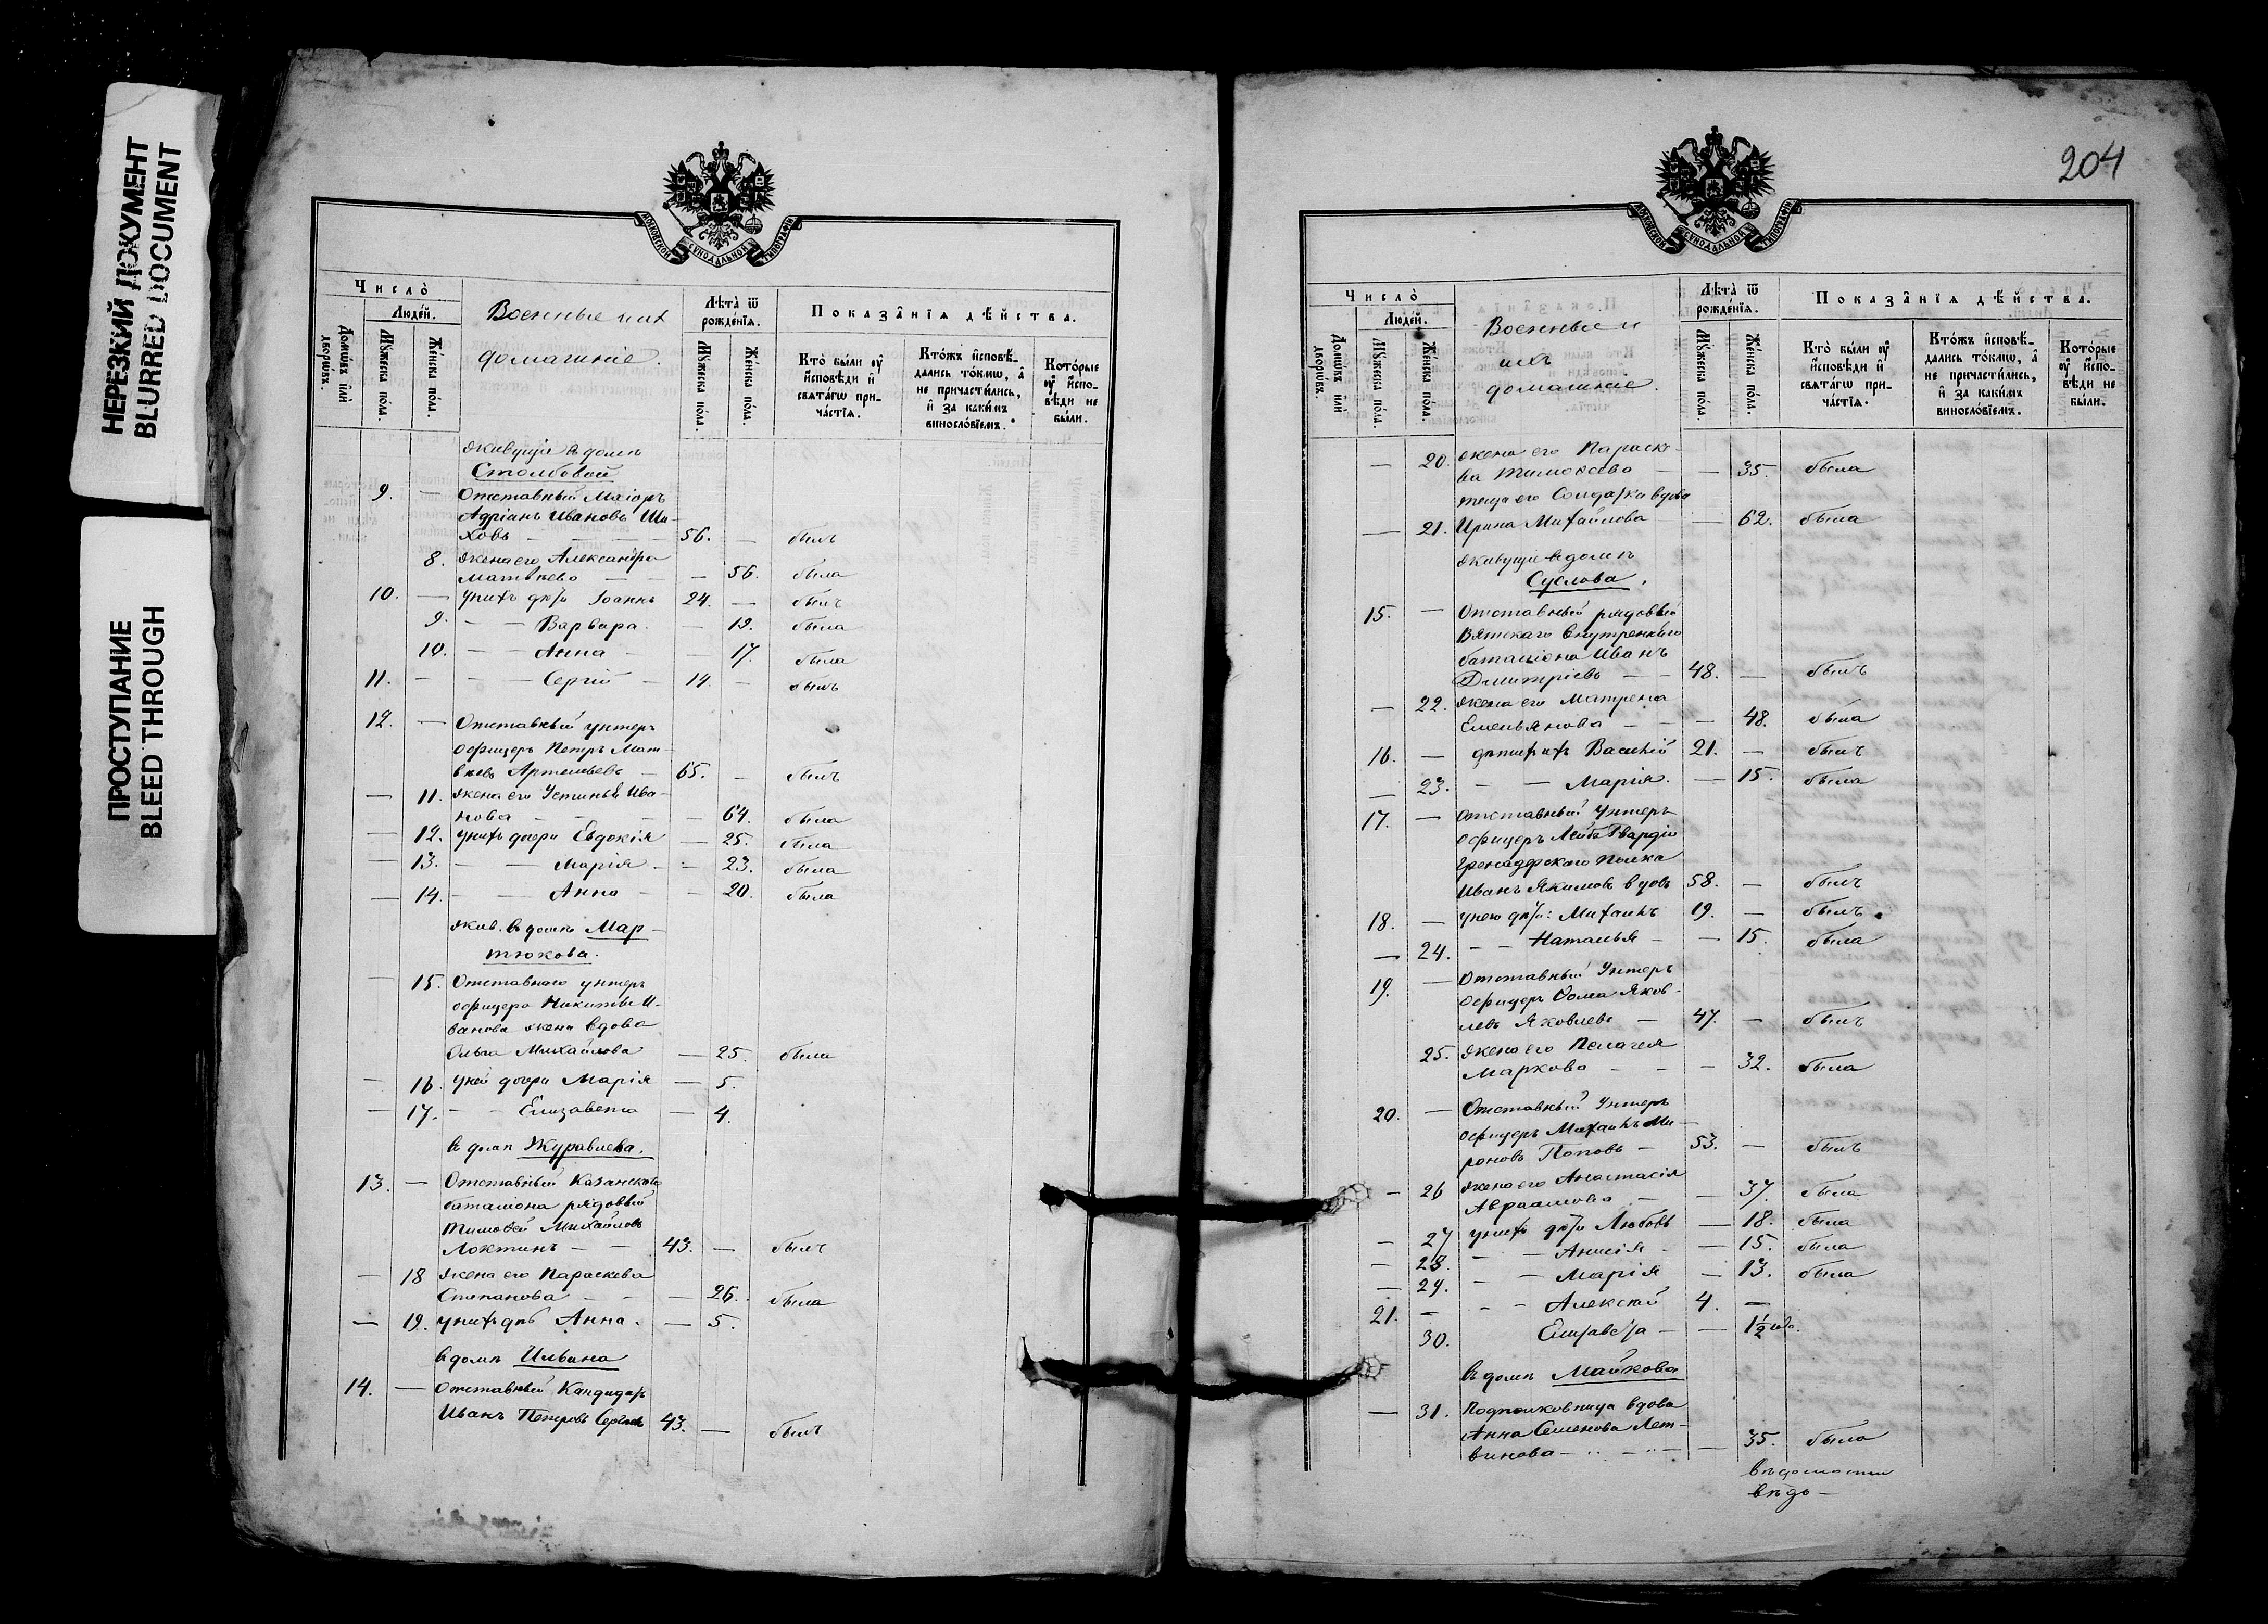 НЕРЕЗКИЙ ДОКУМЕНТ
BLURRED DOCUMENT
ПРОСТУПАНИЕ
BLEED THROUGH
МОСКОВСКОЙ СѴНОДАЛЬНОЙ ТИПОГРАФІИ
Число̀
Люде́й.
Домѡ́въ и҆лѝ дворѡ́въ.
Мꙋ́жеска по́ла.
Же́нска по́ла.
Военные и их
домашніе.
Лѣ́та ѿ рожде́нїѧ.
Мꙋ́жеска по́ла.
Же́нска по́ла.
Показа̑нїѧ дѣ́йства.
Кто̀ бы́ли ᲂу҆ и҆́сповѣди и҆ свѧта́гѡ прича́стїѧ.
Кто́жъ и҆сповѣ́дались то́кмѡ, а҆ не причасти́лись, и҆ за каки́мъ виносло́вїемъ.
Кото́рые ᲂу҆ и҆́сповѣди не бы́ли.
живущіе в домѣ
Столбовой
9. — Отставный Маіоръ
Адріанъ Ивановъ Ши-
ховъ — 56. — былъ
8. жена его Александра
Матвѣева — — 56. была
10. — у нихъ дѣти Іоаннъ 24. — былъ
9. — — Варвара. — 19. была
10. — — Анна — — 17. была
11. — — — Сергій — 14. — былъ
12. — Отставный унтеръ
офицеръ Петръ Мат-
вѣевъ Артемьевъ — 65. — былъ
— 11. жена его Устинья Ива-
нова — — — 64. была
— 12. у нихъ дочери Евдокія — 25. была
— 13. — — Марія — — 23. была
— 14. — — Анна — — 20. была
жив. в домѣ Мар-
тюкова.
— 15. Отставнаго унтеръ
офицера Никиты И-
ванова жена вдова
Ольга Михайлова — 25. была
— 16. у ней дочери Марія — 5.
— 17. — — Елизавета — 4.
в домѣ Журавлева.
13. — Отставный Казанскаго
баталіона рядовый
Тимоѳей Михайловъ
Локтинъ — — 43. — былъ
— 18 жена его Параскева
Степанова — — — 26. была
— 19. у нихъ дѣт Анна. — 5.
в домѣ Ильина
14. — Отставный Кандидатъ
Иванъ Петровъ 43. — былъ
204
МОСКОВСКОЙ СѴНОДАЛЬНОЙ ТИПОГРАФІИ
Число̀
Люде́й.
Домѡ́въ и҆лѝ дворѡ́въ.
Мꙋ́жеска по́ла.
Же́нска по́ла.
Военные и
ихъ
домашніе.
Лѣ́та ѿ рожде́нїѧ.
Мꙋ́жеска по́ла.
Же́нска по́ла.
Показа̑нїѧ дѣ́йства.
Кто̀ бы́ли ᲂу҆ и҆́сповѣди и҆ свѧта́гѡ прича́стїѧ.
Кто́жъ и҆сповѣ́дались то́кмѡ, а҆ не причасти́лись, и҆ за каки́мъ виносло́вїемъ.
Кото́рые ᲂу҆ и҆́сповѣди не бы́ли.
— 20. жена его Параске-
ва Тимоѳеева — — 35. была
теща его Солдатка вдова
— 21. Ирина Михайлова — — 62. была
живущіе в домѣ
Суслова.
15. — Отставный рядовый
Вятскаго внутренняго
баталіона Иванъ
Дмитріевъ — — 48. — былъ
— 22. жена его Матрена
Емельянова — — — 48. была
16. — дѣти ихъ Василій 21. — былъ
— 23. — — Марія. — 15. была
17. — Отставный Унтеръ
офицеръ Лейбъ Гвардіи
Гренадерскаго полка
Иванъ Якимовъ вдовъ 58. — былъ
18. — у него дѣти: Михаилъ 19. — былъ
— 24. — — Наталья — — 15. была
19. — Отставный Унтеръ
офицеръ Ѳома Яков-
левъ Яковлевъ — 47. — былъ
25. жена его Пелагея
Маркова — — — 32. была
20. — Отставный Унтеръ
офицеръ Михаилъ Ми-
роновъ Поповъ — 53. — былъ
— 26 жена его Анастасія
Авраамова — — 37. была
— 27 у нихъ дѣти Любовь — 18. была
— 28. — — Анисія — — 15. была
— 29. — — Марія — 13. была
21. — — — Алексѣй 4. —
30. Елизавета — — 1½ года.
в домѣ Майкова
— 31. Подполковница вдова
Анна Семенова Лет-
винова — — — 35. была
вѣдомости
вѣдо-